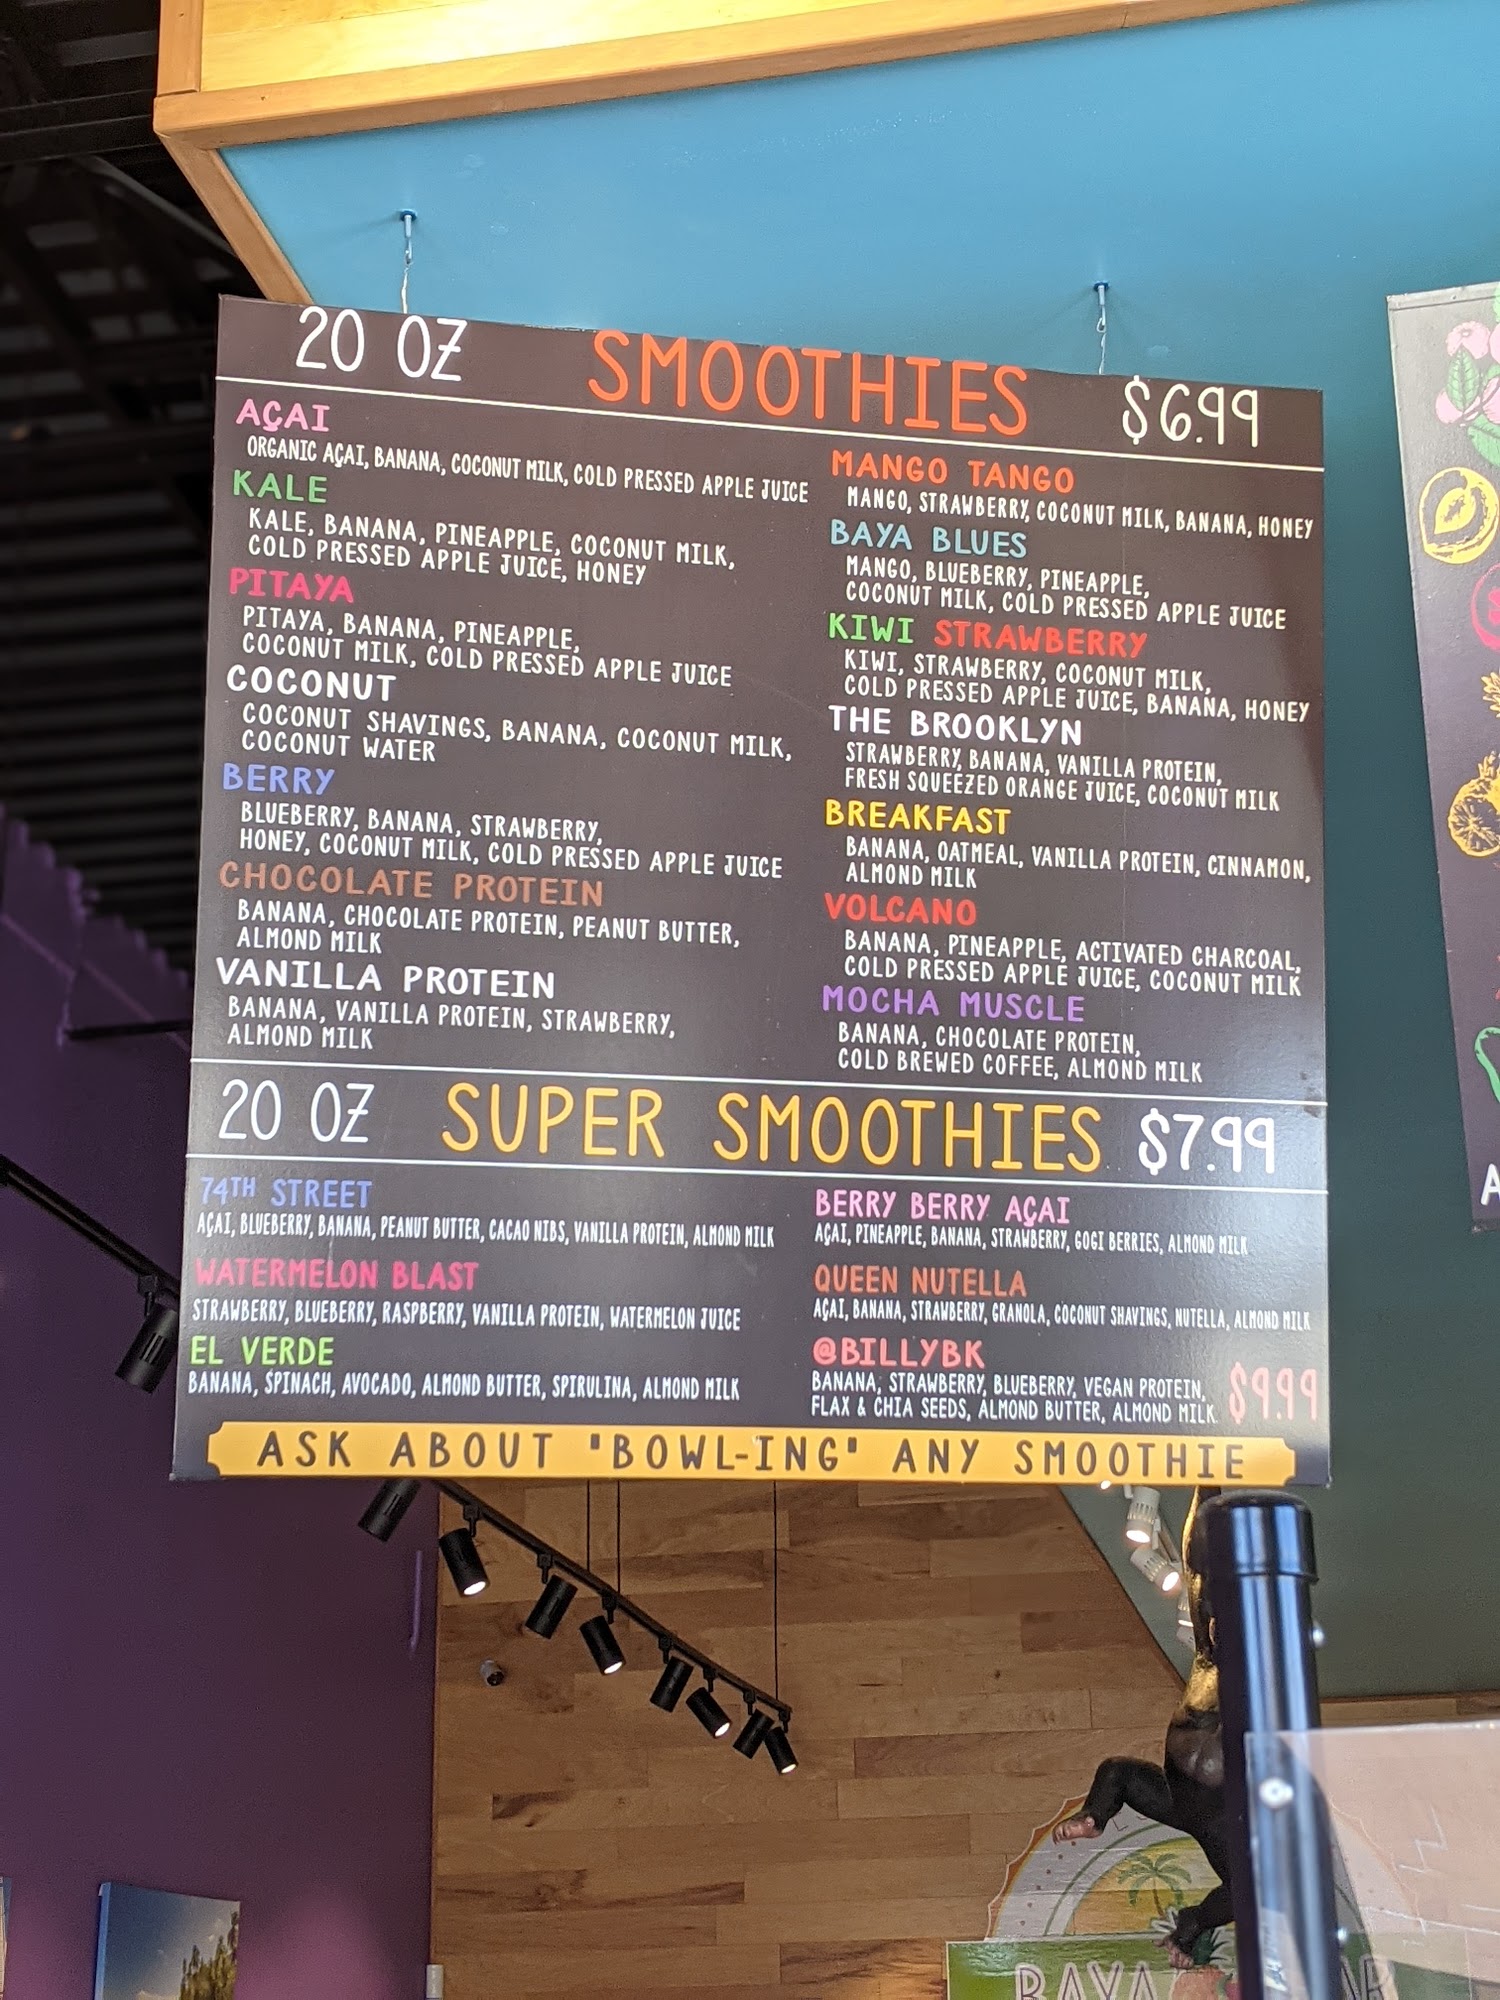 20 OZ SMOOTHIES $6.99
AÇAI
ORGANIC AÇAI, BANANA, COCONUT MILK, COLD PRESSED APPLE JUICE
KALE
KALE, BANANA, PINEAPPLE, COCONUT MILK,
COLD PRESSED APPLE JUICE, HONEY
PITAYA
PITAYA, BANANA, PINEAPPLE,
COCONUT MILK, COLD PRESSED APPLE JUICE
COCONUT
COCONUT SHAVINGS, BANANA, COCONUT MILK,
COCONUT WATER
BERRY
BLUEBERRY, BANANA, STRAWBERRY,
HONEY, COCONUT MILK, COLD PRESSED APPLE JUICE
CHOCOLATE PROTEIN
BANANA, CHOCOLATE PROTEIN, PEANUT BUTTER,
ALMOND MILK
VANILLA PROTEIN
BANANA, VANILLA PROTEIN, STRAWBERRY,
ALMOND MILK
MANGO TANGO
MANGO, STRAWBERRY, COCONUT MILK, BANANA, HONEY
BAYA BLUES
MANGO, BLUEBERRY, PINEAPPLE,
COCONUT MILK, COLD PRESSED APPLE JUICE
KIWI STRAWBERRY
KIWI, STRAWBERRY, COCONUT MILK,
COLD PRESSED APPLE JUICE, BANANA, HONEY
THE BROOKLYN
STRAWBERRY, BANANA, VANILLA PROTEIN,
FRESH SQUEEZED ORANGE JUICE, COCONUT MILK
BREAKFAST
BANANA, OATMEAL, VANILLA PROTEIN, CINNAMON,
ALMOND MILK
VOLCANO
BANANA, PINEAPPLE, ACTIVATED CHARCOAL,
COLD PRESSED APPLE JUICE, COCONUT MILK
MOCHA MUSCLE
BANANA, CHOCOLATE PROTEIN,
COLD BREWED COFFEE, ALMOND MILK
20 OZ SUPER SMOOTHIES $7.99
74TH STREET
AÇAI, BLUEBERRY, BANANA, PEANUT BUTTER, CACAO NIBS, VANILLA PROTEIN, ALMOND MILK
WATERMELON BLAST
STRAWBERRY, BLUEBERRY, RASPBERRY, VANILLA PROTEIN, WATERMELON JUICE
EL VERDE
BANANA, SPINACH, AVOCADO, ALMOND BUTTER, SPIRULINA, ALMOND MILK
BERRY BERRY AÇAI
AÇAI, PINEAPPLE, BANANA, STRAWBERRY, GOGI BERRIES, ALMOND MILK
QUEEN NUTELLA
AÇAI, BANANA, STRAWBERRY, GRANOLA, COCONUT SHAVINGS, NUTELLA, ALMOND MILK
@BILLYBK
BANANA, STRAWBERRY, BLUEBERRY, VEGAN PROTEIN,
FLAX & CHIA SEEDS, ALMOND BUTTER, ALMOND MILK $9.99
ASK ABOUT "BOWL-ING" ANY SMOOTHIE
BAYA